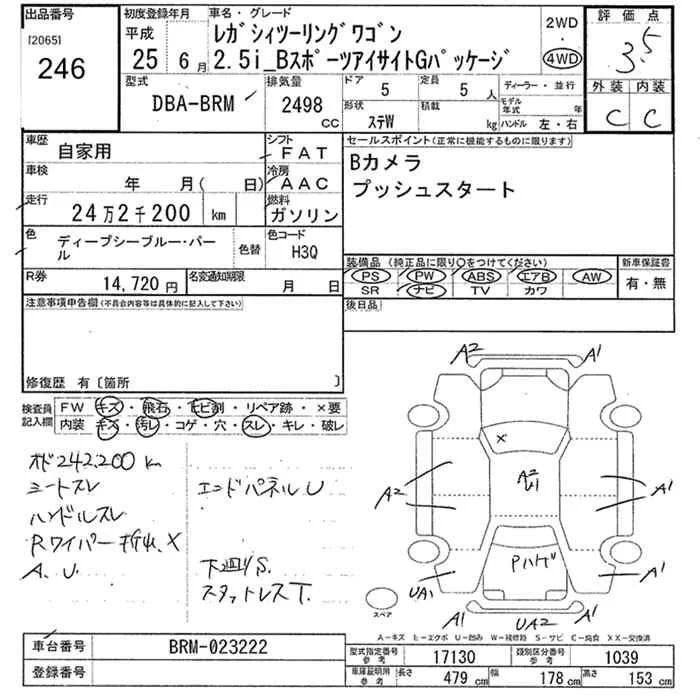 出品番号
[2065]
246
初度登録年月
平成
25 6月
車名・グレード
レガシィツーリングワゴン
2.5i_BスポーツアイサイトGパッケージ
2WD
・
4WD
評価点
3.5
外装 内装
C C
型式
DBA-BRM
排気量
2498
cc
ドア
5
定員
5人
形状
ステW
積載
kg
ディーラー・並行
モデル年式
年
ハンドル 左・右
車歴
自家用
シフト
FAT
車検
年 月( 日)
冷房
AAC
走行
24万2千200 km
燃料
ガソリン
色
ディープシーブルー・パール
色替
色コード
H3Q
R券
14,720円
名変通知期限
月 日
セールスポイント(正常に機能するものに限ります)
Bカメラ
プッシュスタート
装備品(純正品に限り○をつけてください)
PS PW ABS エアB AW
SR ナビ TV カワ
新車保証書
有・無
後日品
注意事項申告欄(不具合内容等は具体的に記入して下さい)
修復歴 有〔箇所 〕
検査員
記入欄
FW キズ・飛石・ヒビ割・リペア跡・×要
内装 キズ・汚レ・コゲ・穴・スレ・キレ・破レ
オド242,200 km
シートスレ
ハンドルスレ
Rワイパー折レ、X
A、U
エンドパネルU
下廻りS.
スタットレスT.
A2 A1
X
A2
U1
A2 A1
Pハゲ
UA1 A1
A1 UA2 A2
スペア
A-キズ E-エクボ U-凹み W-補修跡 S-サビ C-腐食 XX-交換済
車台番号
BRM-023222
登録番号
型式指定番号
参考
17130
類別区分番号
参考
1039
車庫証明用
参考
長さ
479 cm
幅
178 cm
高さ
153 cm